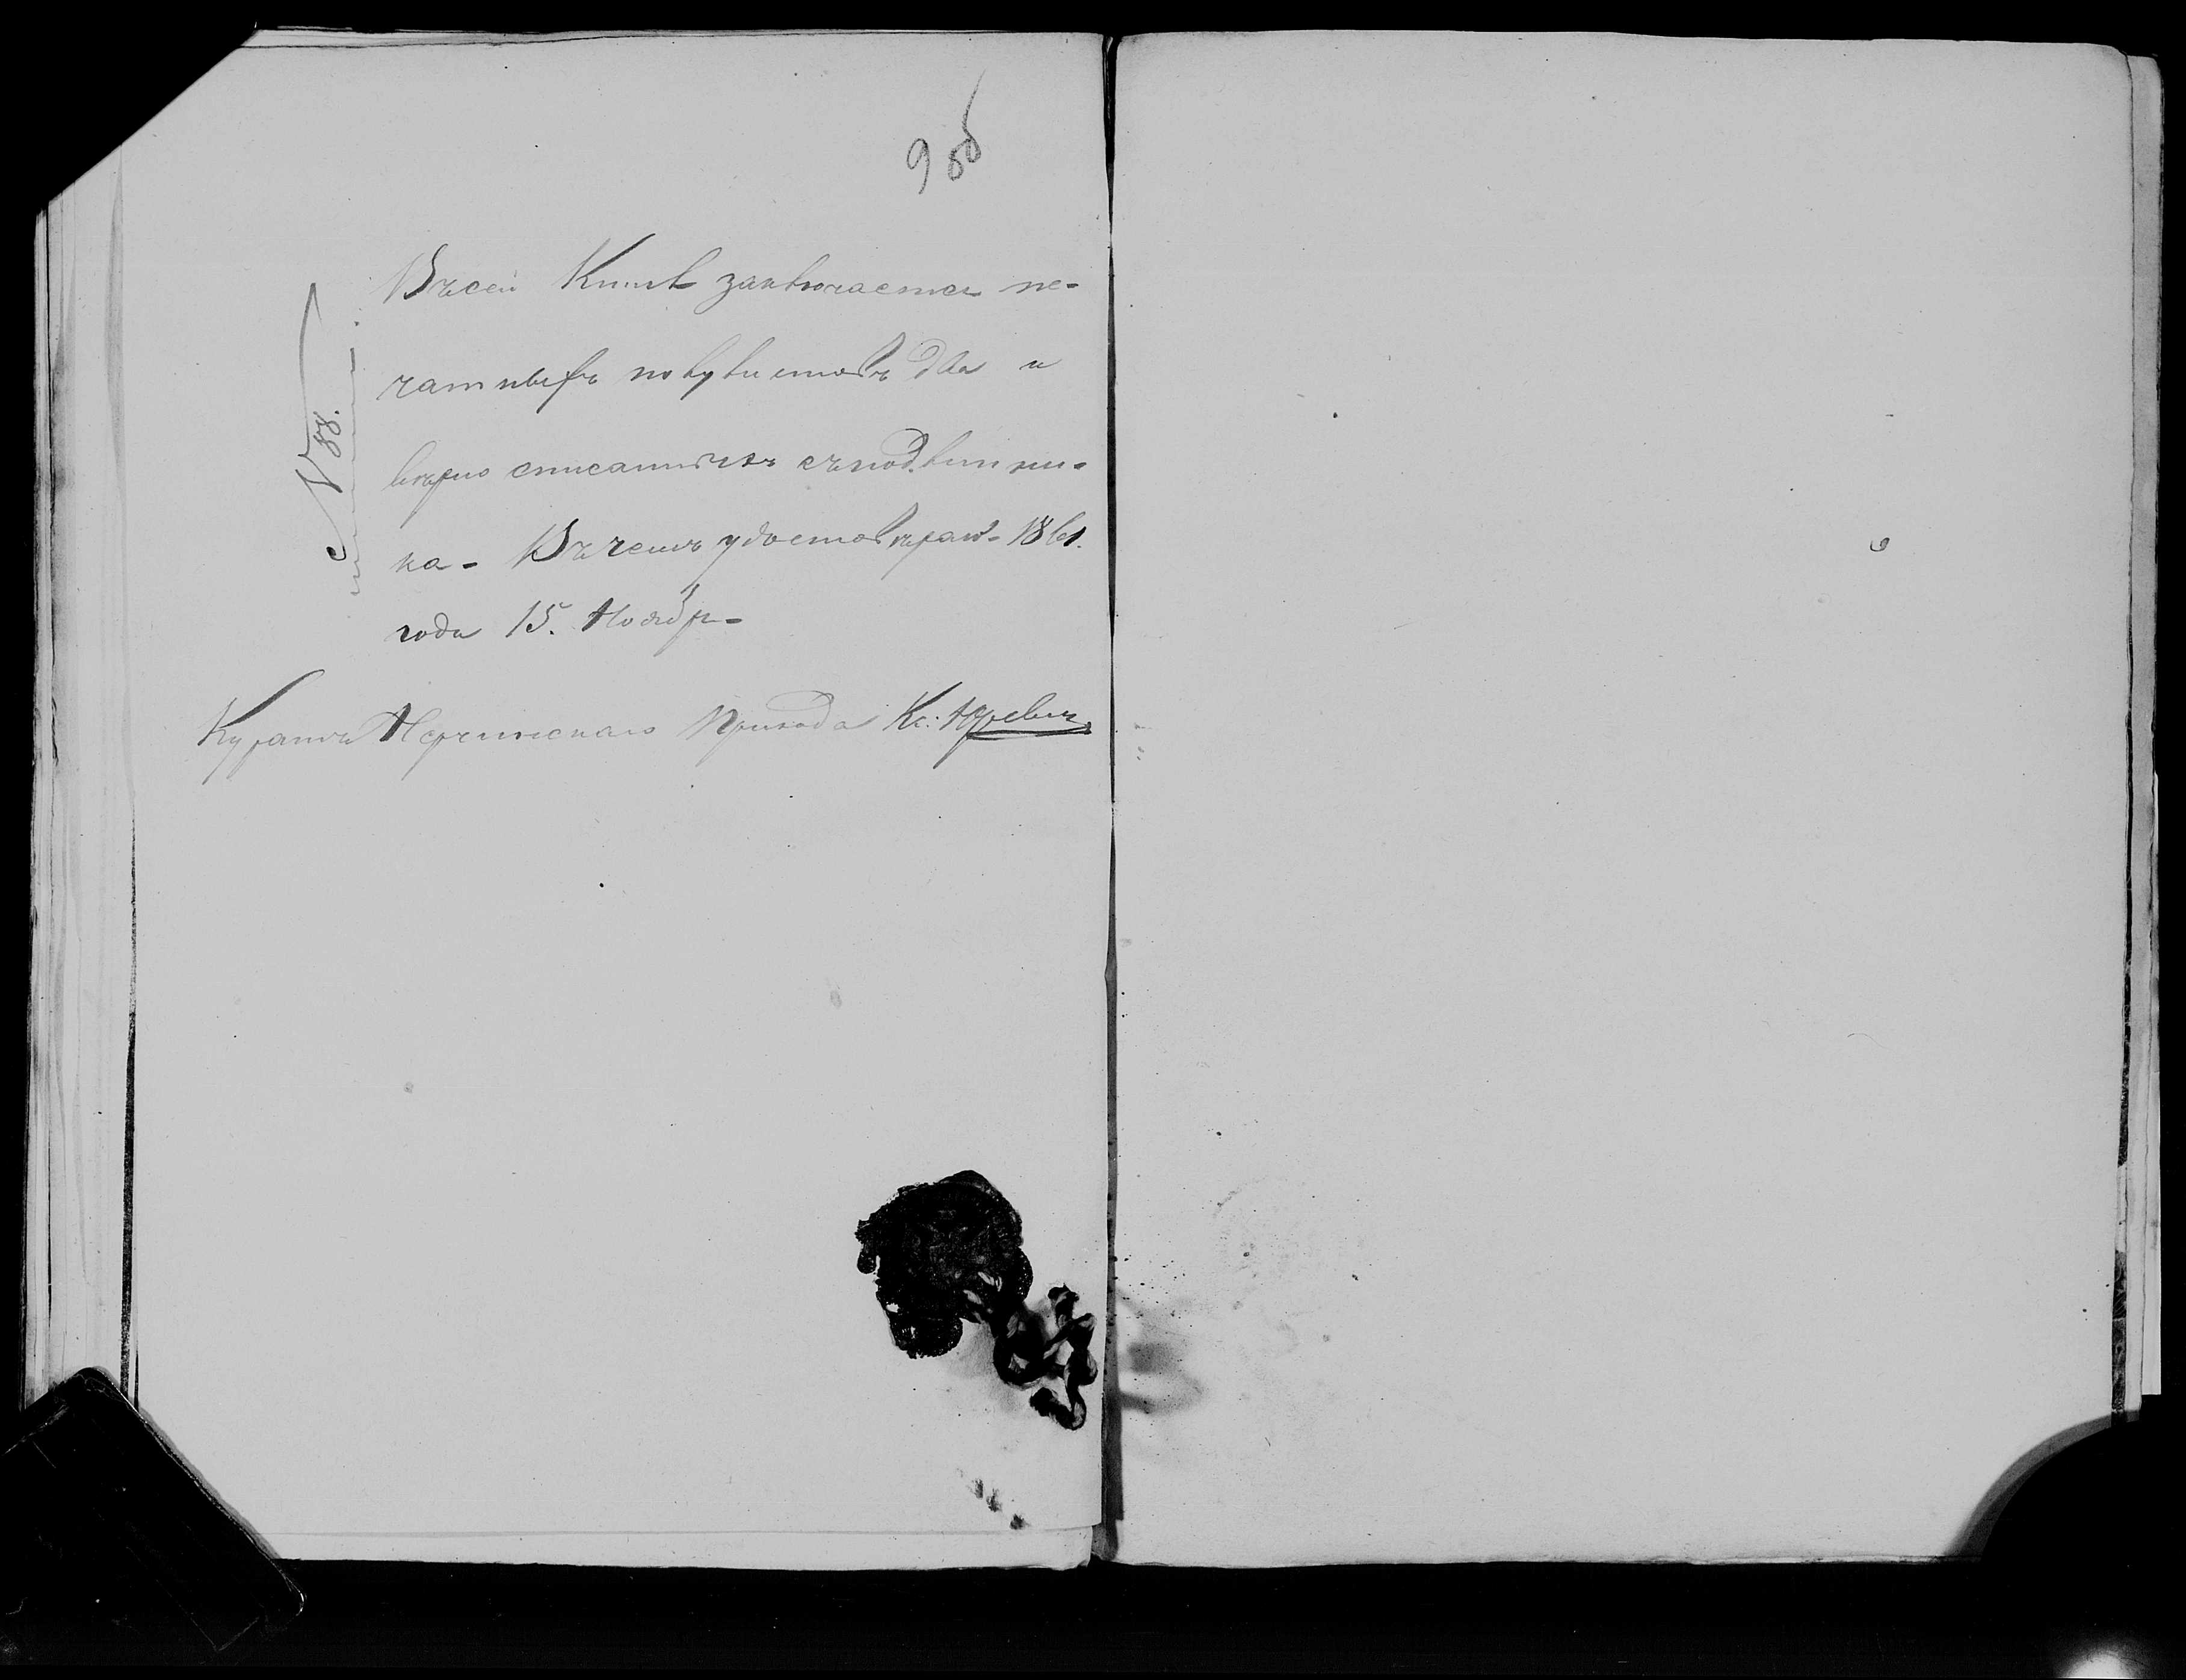 9 об
№ 88.
Въ сей Книгѣ заключается пе-
чатныхъ полулистовъ два и
вѣрно списанныхъ съ подлинни-
ка - Въ чемъ удостовѣряю - 1861.
года 15. Ноябр-
Куратъ Нерчинскаго Прихода Кс: